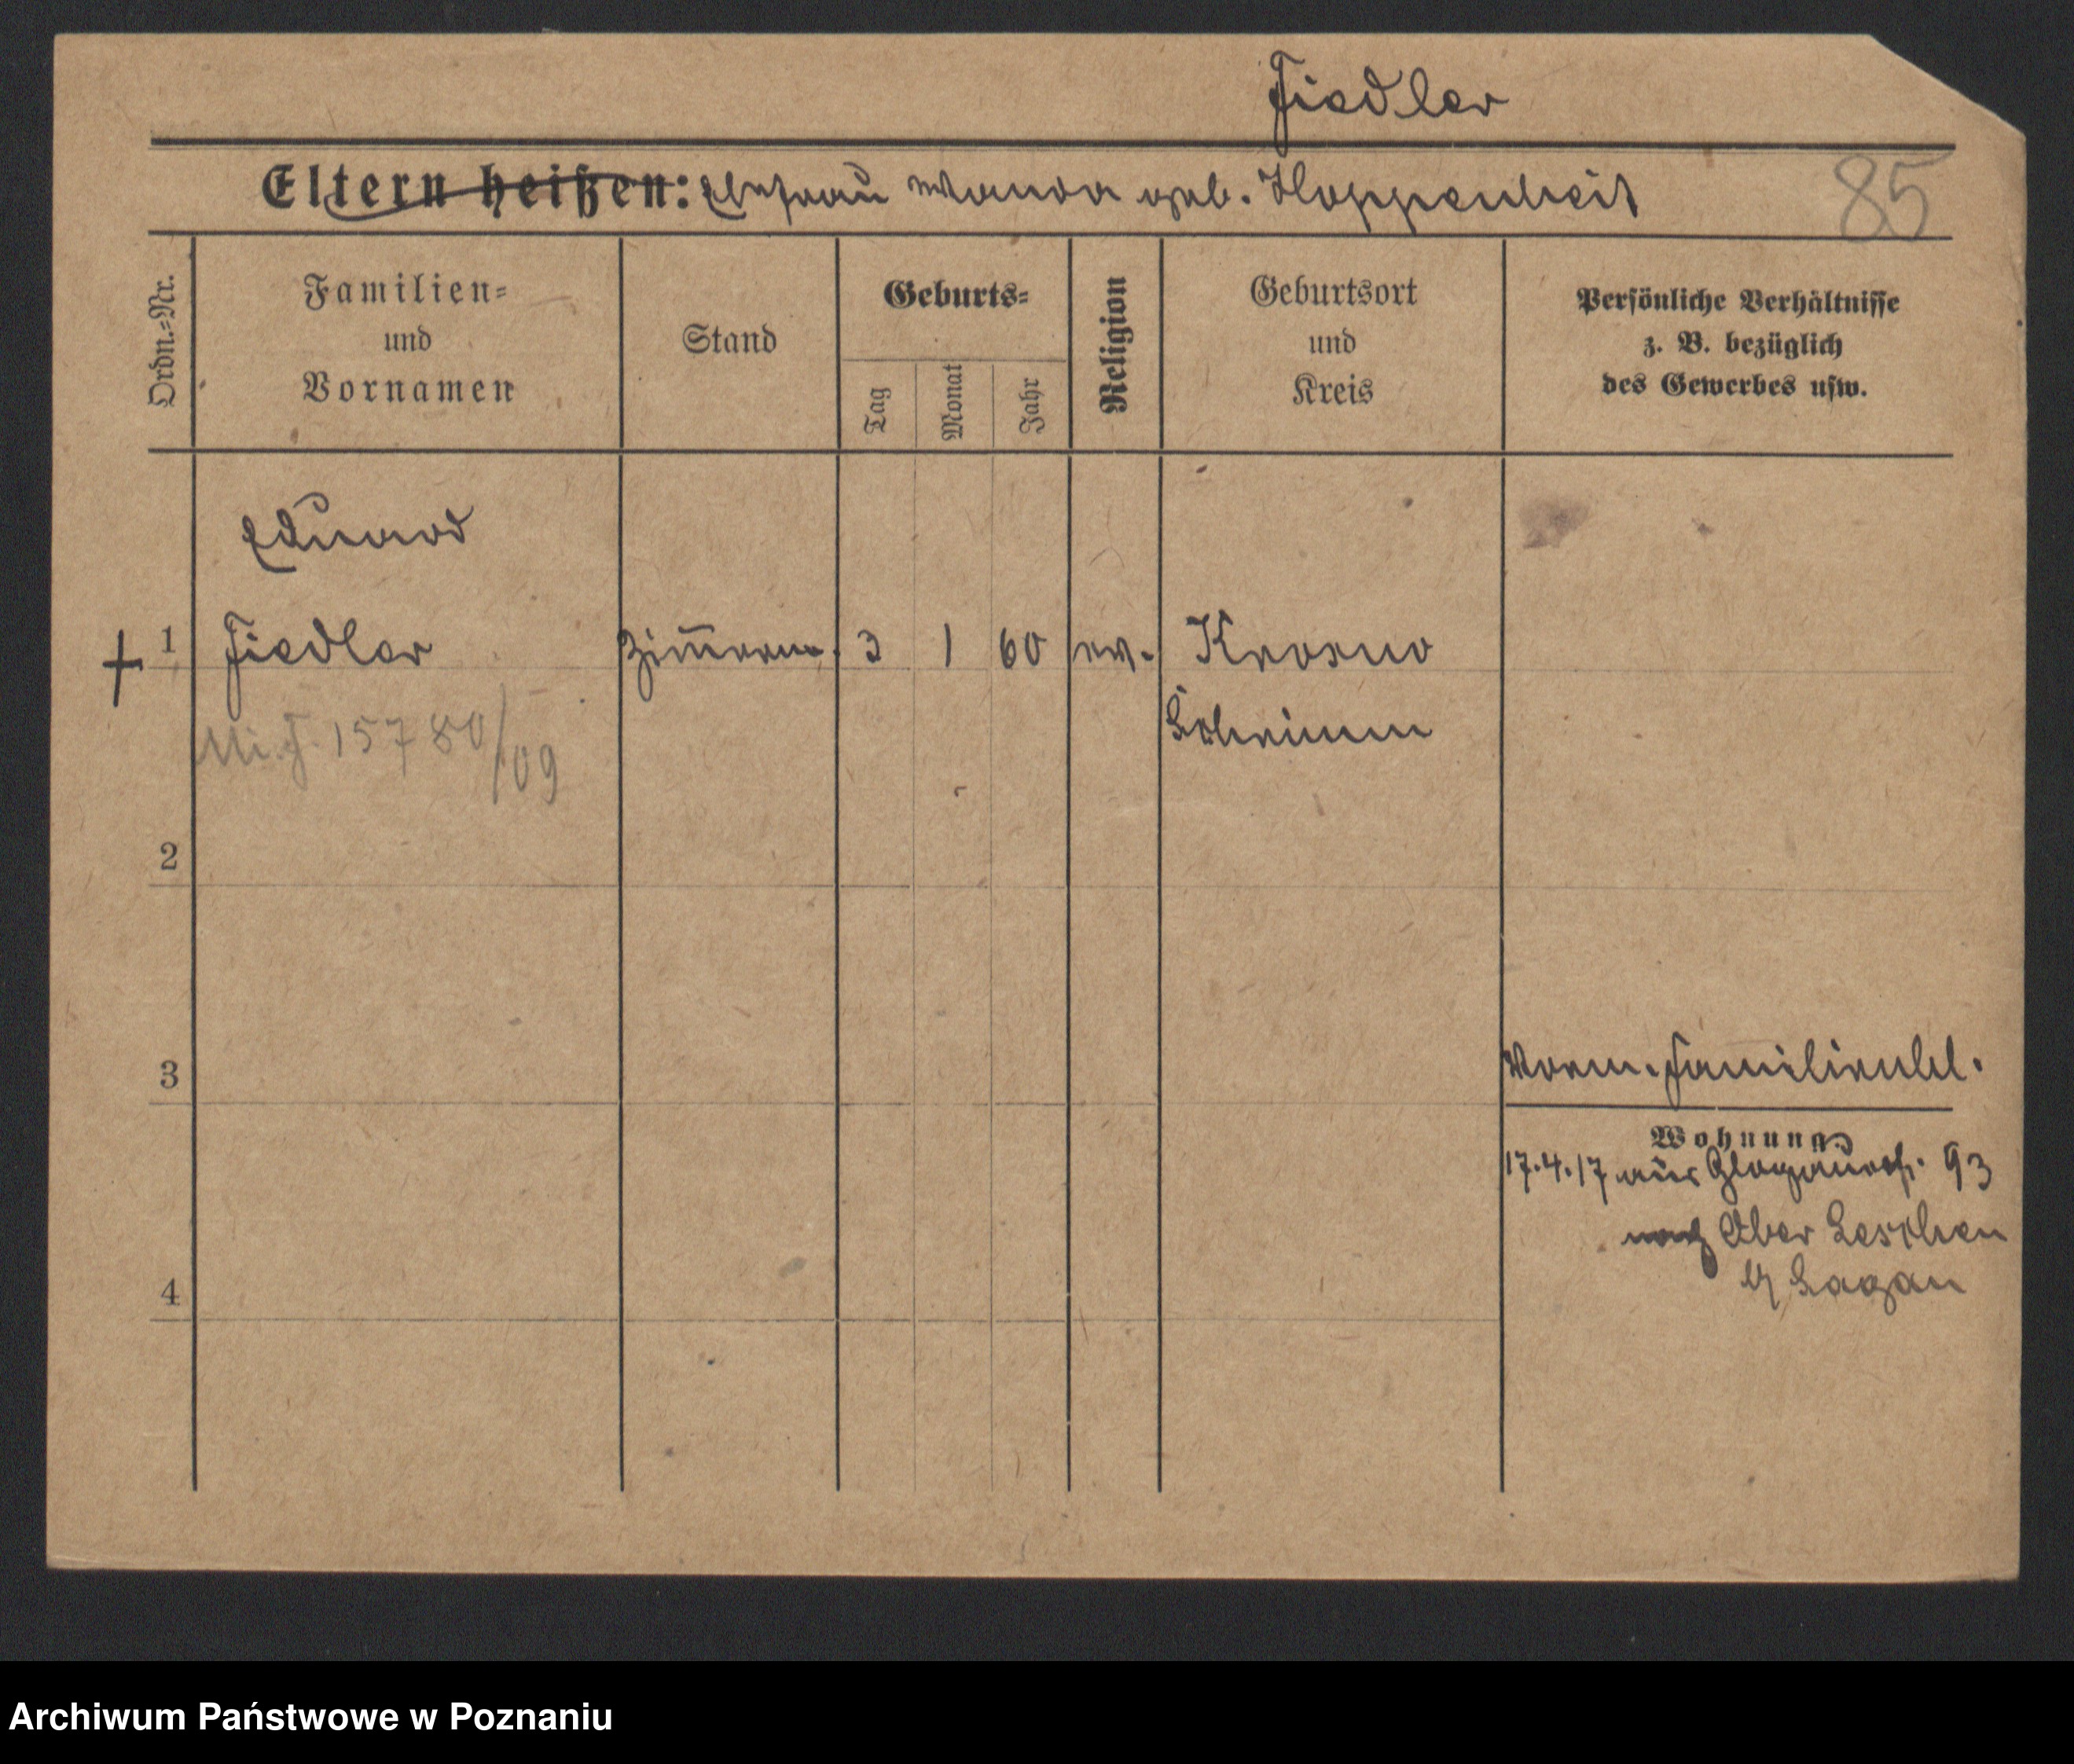 Fiedler
Eltern heißen: Ehefrau Wanda geb. Hoppenheit
85
Ordn.=Nr.
Familien=
und
Vornamen
Stand
Geburts=
Tag
Monat
Jahr
Religion
Geburtsort
und
Kreis
Persönliche Verhältnisse
z. B. bezüglich
des Gewerbes usw.
Eduard
1 Fiedler Zim̅erm. 3 1 60 ev. Krosno
Schrimm
Mi. J. 15780/09
2
3
Familienbl.
Wohnung
17.4.17 aus Glogauerst. 93
nach Ober Leschen
Sagan
4
Archiwum Państwowe w Poznaniu